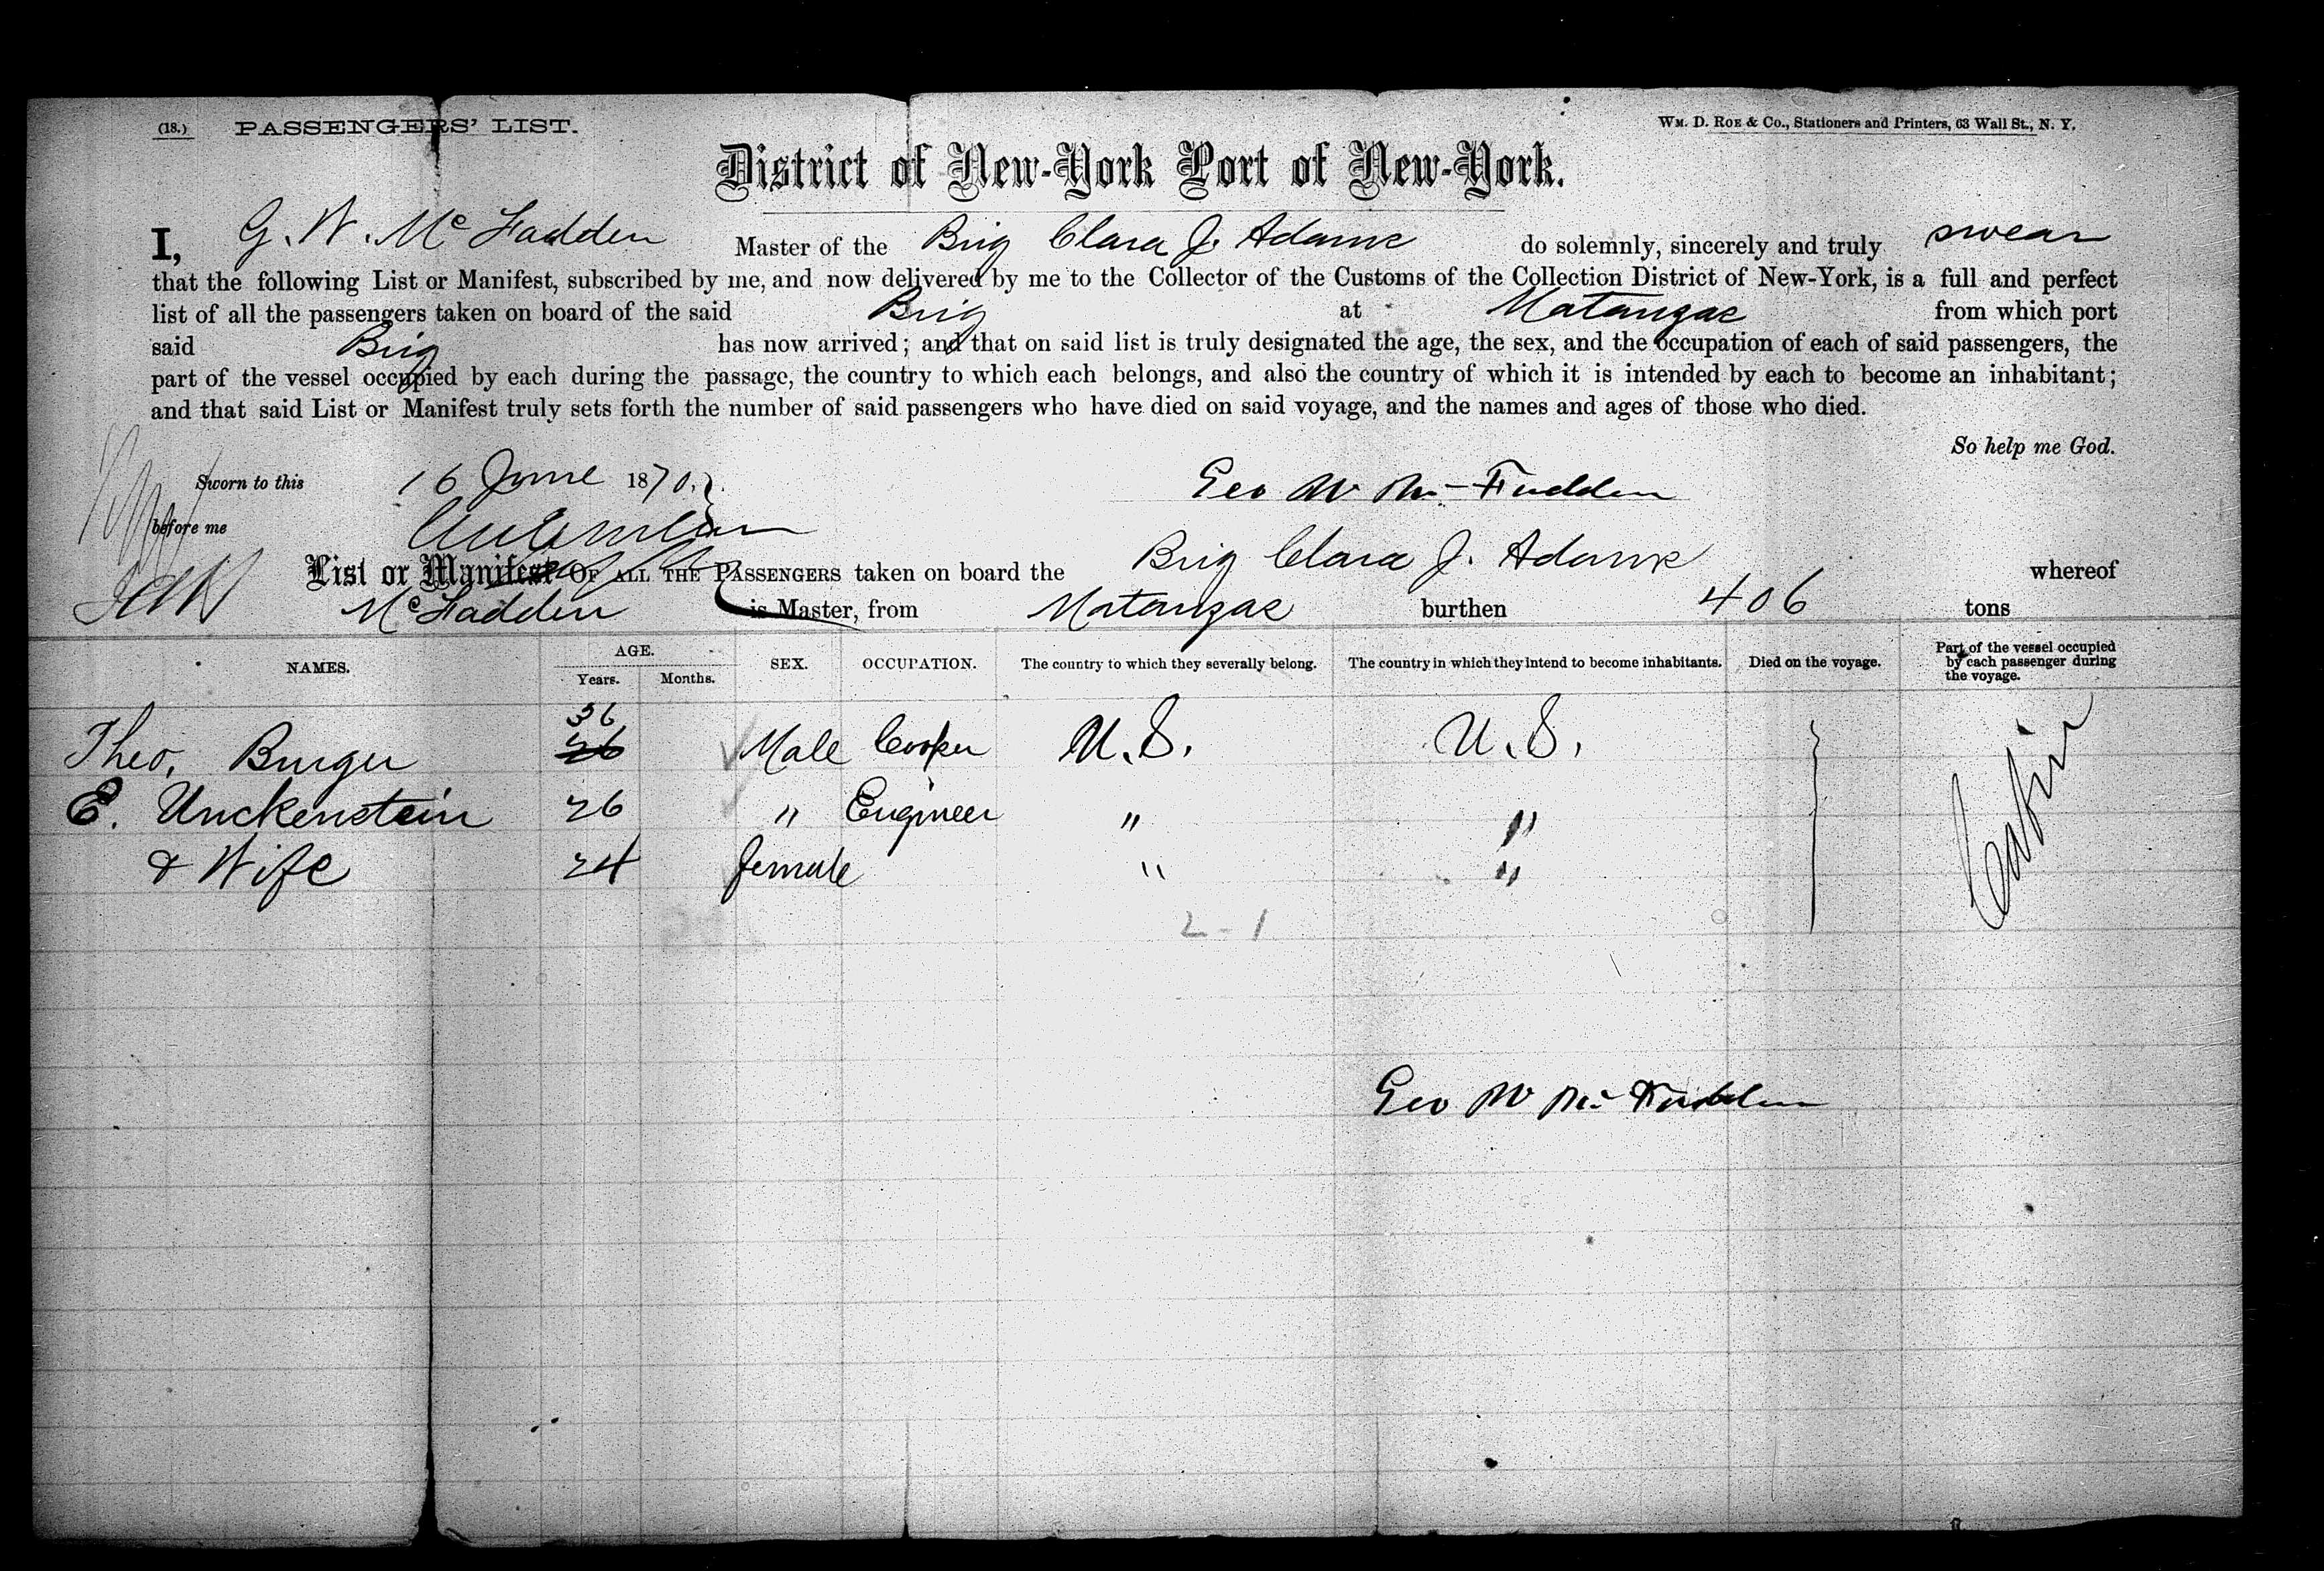 (18.) PASSENGERS' LIST.
WM. D. ROE & Co., Stationers and Printers, 63 Wall St., N. Y.
District of New-York Port of New-York.
I, G. W. McFadden Master of the Brig Clara J. Adams do solemnly, sincerely and truly swear
that the following List or Manifest, subscribed by me, and now delivered by me to the Collector of the Customs of the Collection District of New-York, is a full and perfect
list of all the passengers taken on board of the said Brig at Matanzas from which port
said Brig has now arrived; and that on said list is truly designated the age, the sex, and the occupation of each of said passengers, the
part of the vessel occupied by each during the passage, the country to which each belongs, and also the country of which it is intended by each to become an inhabitant;
and that said List or Manifest truly sets forth the number of said passengers who have died on said voyage, and the names and ages of those who died.
So help me God.
Sworn to this 16 June 1870. Geo W Mc Fadden
before me
List or Manifest OF ALL THE PASSENGERS taken on board the Brig Clara J. Adams whereof
McFadden is Master, from Matanzas burthen 406 tons
NAMES. AGE. Years. Months. SEX. OCCUPATION. The country to which they severally belong. The country in which they intend to become inhabitants. Died on the voyage. Part of the vessel occupied by each passenger during the voyage.
36
Theo. Burger 26 Male Cooper U.S. U.S. Cabin
E. Unckenstein 26 " Engineer " "
& Wife 24 female " "
2-1
Geo W Mc Fadden